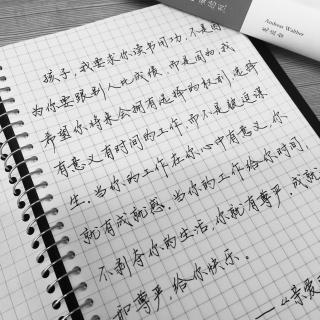 Andreas Walther
孩子,我要求你读书用功,不是因
为你要跟别人比成绩,而是因为,我
希望你将来会拥有选择的权利,选择
有意义有时间的工作,而不是被迫谋
生。当你的工作在你心中有意义,你
就有成就感。当你的工作给你时间
不剥夺你的生活,你就有尊严,成就
和尊严,给你快乐。
——《亲爱